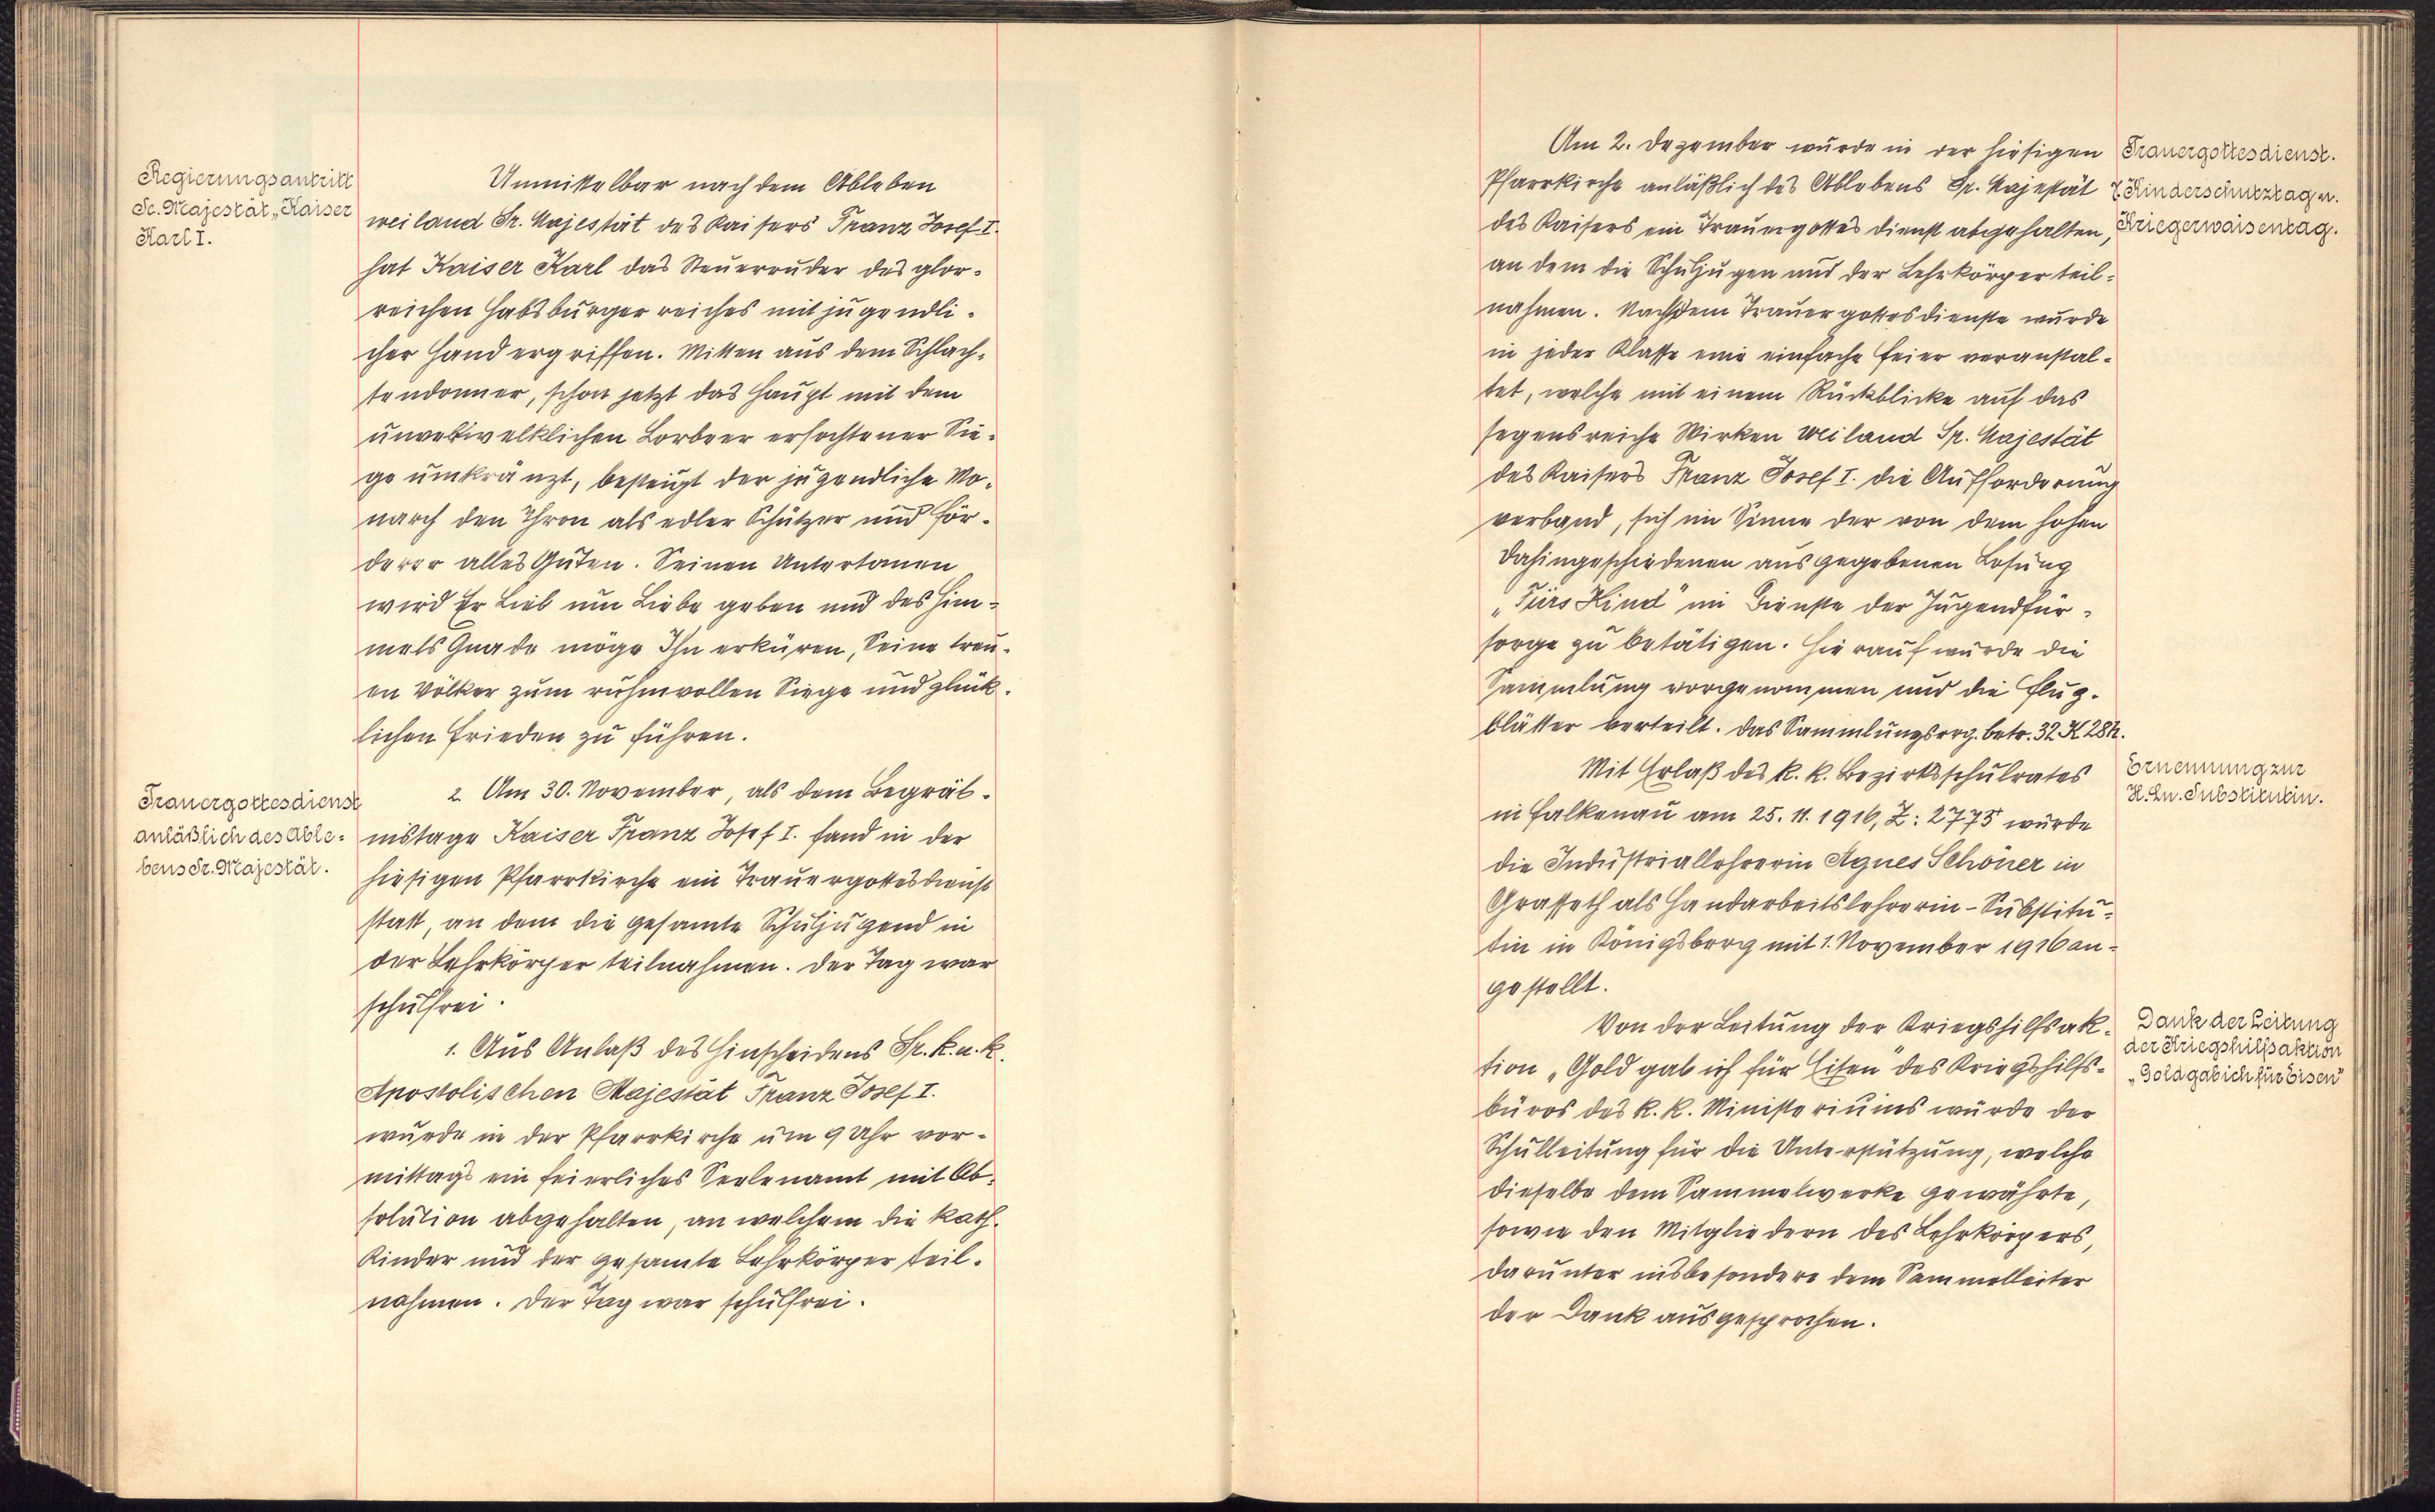 Regierungsantritt
Sr. Majestät „Kaiser
Karl I.
Unmittelbar nach dem Ableben
weiland Sr. Majestät des Kaisers Franz Josef I.
hat Kaiser Karl das Steuerruder des glor-
reichen Habsburgerreiches mit jugendli-
cher Hand ergriffen. Mitten aus dem Schlach-
tendonner, schon jetzt das Haupt mit dem
unverwelklichen Lorbeer erfochtener Sie-
ge umkränzt, besteigt der jugendliche Mo-
narch den Thron als edler Schützer und För-
derer alles Guten. Seinen Untertanen
wird Er Lieb um Liebe geben und des Him-
mels Gnade möge Ihn erküren, Seine treu-
en Völker zum ruhmvollen Siege und glück-
lichen Frieden zu führen.
Trauergottesdienst
anläßlich des Able-
bens Sr. Majestät.
2. Am 30. November, als dem Begräb-
nistage Kaiser Franz Josef I. fand in der
hiesigen Pfarrkirche ein Trauergottesdienst
statt, an dem die gesamte Schuljugend in
der Lehrkörper teilnahmen. Der Tag war
schulfrei.
1. Aus Anlaß des Hinscheidens Sr. k. u. k.
Apostolischen Majestät Franz Josef I.
wurde in der Pfarrkirche um 9 Uhr vor-
mittags ein feierliches Seelenamt mit Ab-
solution abgehalten, an welchem die kath.
Kinder und der gesamte Lehrkörper teil-
nahmen. Der Tag war schulfrei.
Am 2. Dezember wurde in der hiesigen
Pfarrkirche anläßlich des Ablebens Sr. Majestät
des Kaisers ein Trauergottesdienst abgehalten,
an dem die Schuljugen und der Lehrkörper teil-
nahmen. Nach dem Trauergottesdienste wurde
in jeder Klasse eine einfache Feier veranstal-
tet, welche mit einem Rückblicke auf das
segensreiche Wirken weiland Sr. Majestät
des Kaisers Franz Josef I. die Aufforderung
verband, sich im Sinne der von dem hohen
Dahingeschiedenen ausgegebenen Losung
„Fürs Kind" im Dienste der Jugendfür-
sorge zu betätigen. Hierauf wurde die
Sammlung vorgenommen und die Flug-
blätter verteilt. Das Sammlungserg. betr. 32 K 28 h.
Trauergottesdienst.
Kinderschutztag u.
Kriegerwaisentag.
Mit Erlaß des k. k. Bezirksschulrates
in Falkenau am 25. 11. 1916, Z: 2775 wurde
die Industriallehrerin Agnes Schöner in
Grasseth als Handarbeitslehrerin-Substitu-
tin in Königsberg mit 1. November 1916 an-
gestellt.
Ernennung zur
H. Ln. Substitutin.
Von der Leitung der Kriegshilfsak-
tion „Gold gab ich für Eisen" des Kriegshilfs-
büros des k. k. Ministeriums wurde der
Schulleitung für die Unterstützung, welche
dieselbe dem Sammelwerke gewährte,
sowie den Mitgliedern des Lehrkörpers,
darunter insbesondere dem Sammelleiter
der Dank ausgesprochen.
Dank der Leitung
der Kriegshilfsaktion
„Gold gab ich für Eisen"